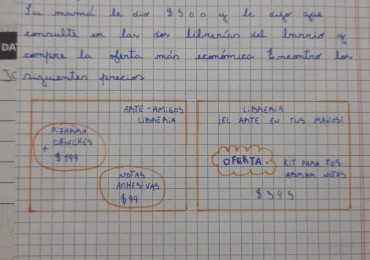 Su mamá le dio $500 y le dijo que
consulte en las dos librerías del barrio y
compre la oferta más económica Encontro los
siguientes precios
ARTE-AMIGOS
LIBRERIA
PIZARRA
CHINCHES
+
$199
NOTAS
ADHESIVAS
$99
LIBRERIA
¡EL ARTE EN TUS MANOS!
OFERTA.
KIT PARA TUS
ARMAR NOTAS
$395